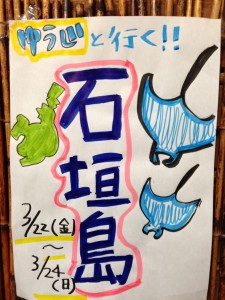 ゆう山と行く!!
石垣島
3/22(金)
～
3/24(日)